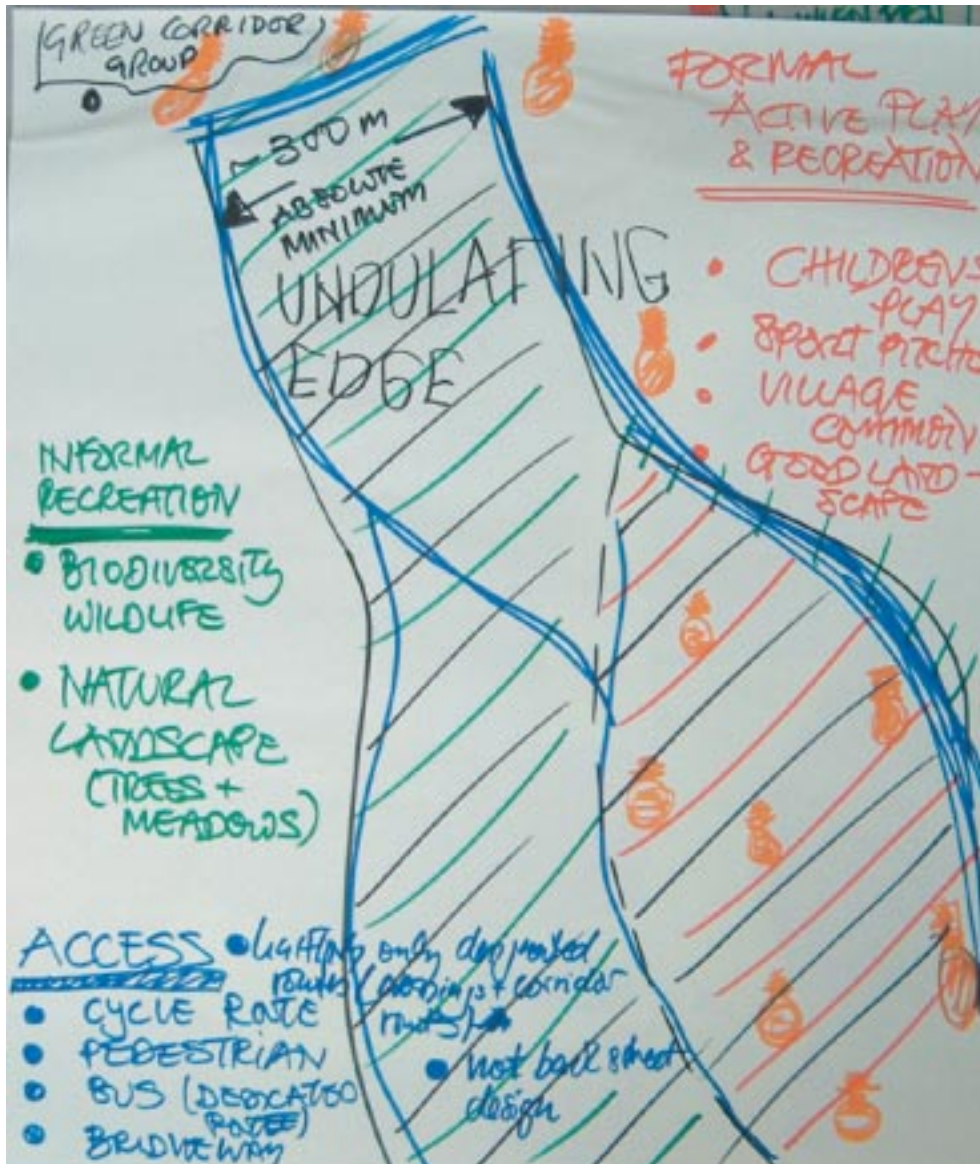 (GREEN CORRIDOR)
GROUP
~300 m
ABSOLUTE
MINIMUM
UNDULATING
EDGE
FORMAL
ACTIVE PLAY
& RECREATION
• CHILDRENS
PLAY
• SPORT PITCHE
• VILLAGE
COMMON
• GOOD LAND-
SCAPE
INFORMAL
RECREATION
• BIODIVERSITY
WILDLIFE
• NATURAL
LANDSCAPE
(TREES +
MEADOWS)
ACCESS
• CYCLE ROUTE
• PEDESTRIAN
• BUS (DEDICATED
ROUTE)
• BRIDLEWAY
• lighting only
routes corridor
• not back street
design